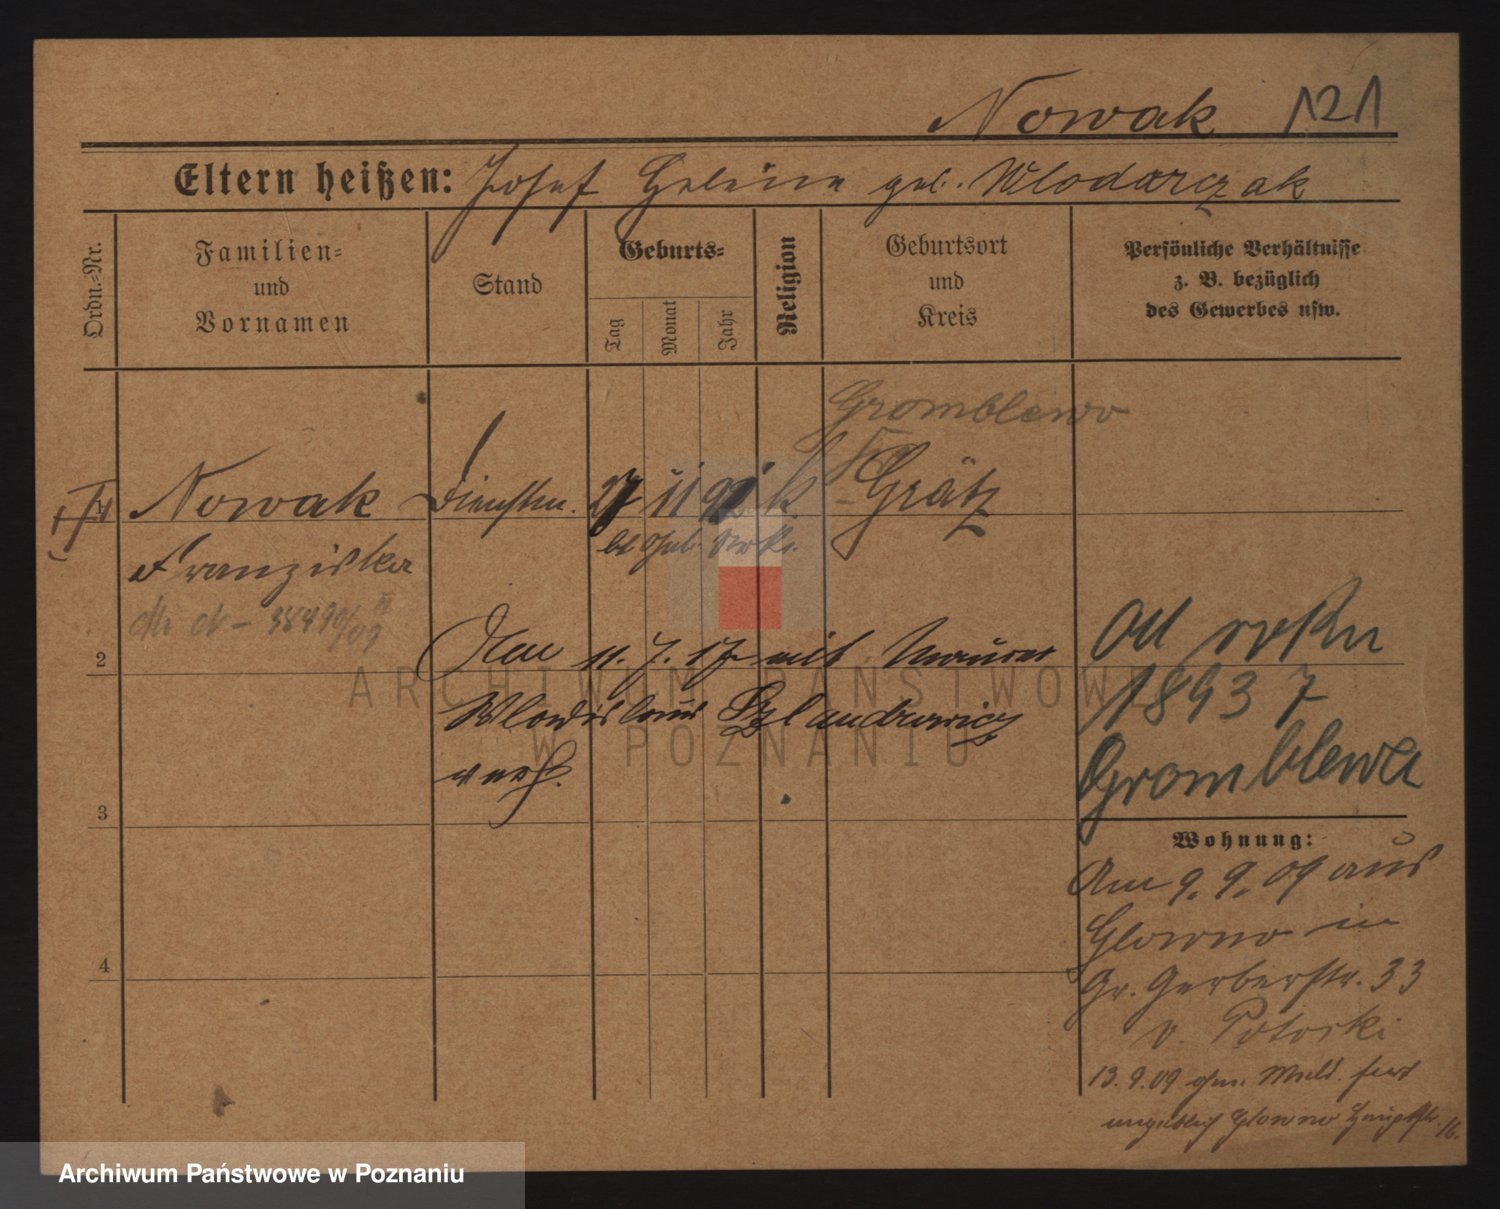 Nowak 121
Eltern heißen: Josef Helene geb. Wlodarczak
Ordn.-Nr.
Familien-
und
Vornamen
Stand
Geburts-
Tag
Monat
Jahr
Religion
Geburtsort
und
Kreis
Persönliche Verhältnisse
z. B. bezüglich
des Gewerbes usw.
Gromblewo
Nowak Dienstm. 27 11 92 k. Grätz
Franziska
2
Den 11. 7. 17 mit Maurer
Wladislaus Szlandrowicz
verh.
od roku
1893 7
Gromblewa
3
Wohnung:
Am 9. 9. 09 aus
Glowno in
Gr. Gerberstr. 33
v. Potocki
4
13. 9. 09 ohne Meld. fort
angeblich Glowno Hauptstr. 16.
ARCHIWUM PAŃSTWOWE
W POZNANIU
Archiwum Państwowe w Poznaniu